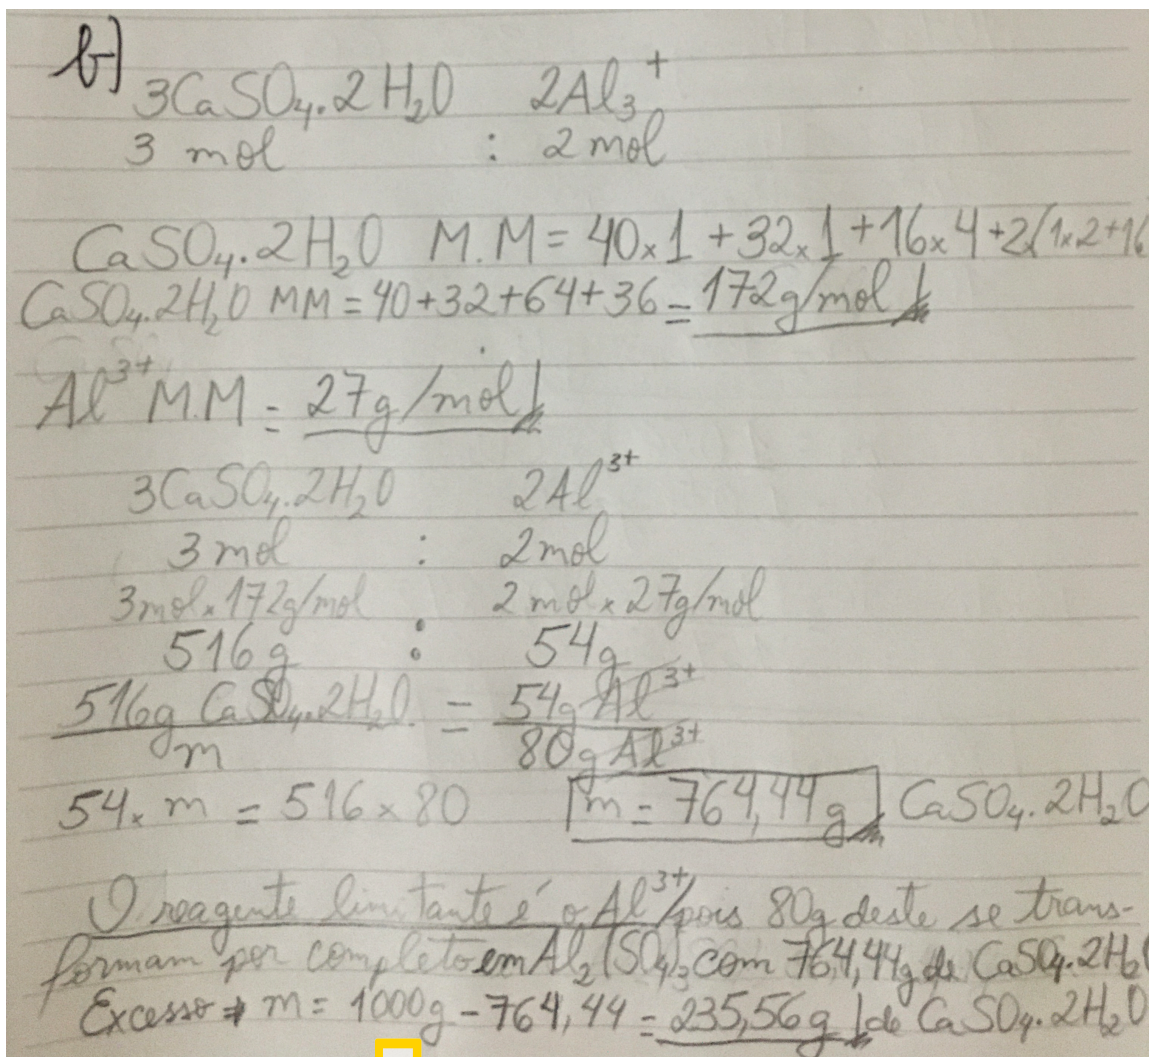 b)
3CaSO₄.2H₂O 2Al₃⁺
3 mol : 2 mol
CaSO₄.2H₂O M.M = 40x1 + 32x1 + 16x4 + 2(1x2+16
CaSO₄.2H₂O MM = 40+32+64+36 = 172g/mol
Al³⁺ M.M = 27g/mol
3CaSO₄.2H₂O 2Al³⁺
3 mol : 2mol
3mol x 172g/mol 2 mol x 27g/mol
516g : 54g
516g CaSO₄.2H₂O = 54g Al³⁺
m 80g Al³⁺
54 x m = 516 x 80 m = 764,44g CaSO₄.2H₂O
O reagente limitante é o Al³⁺, pois 80g deste se trans-
formam por completo em Al₂(SO₄)₃ com 764,44g de CaSO₄.2H₂O
Excesso → m = 1000g - 764,44 = 235,56g de CaSO₄.2H₂O